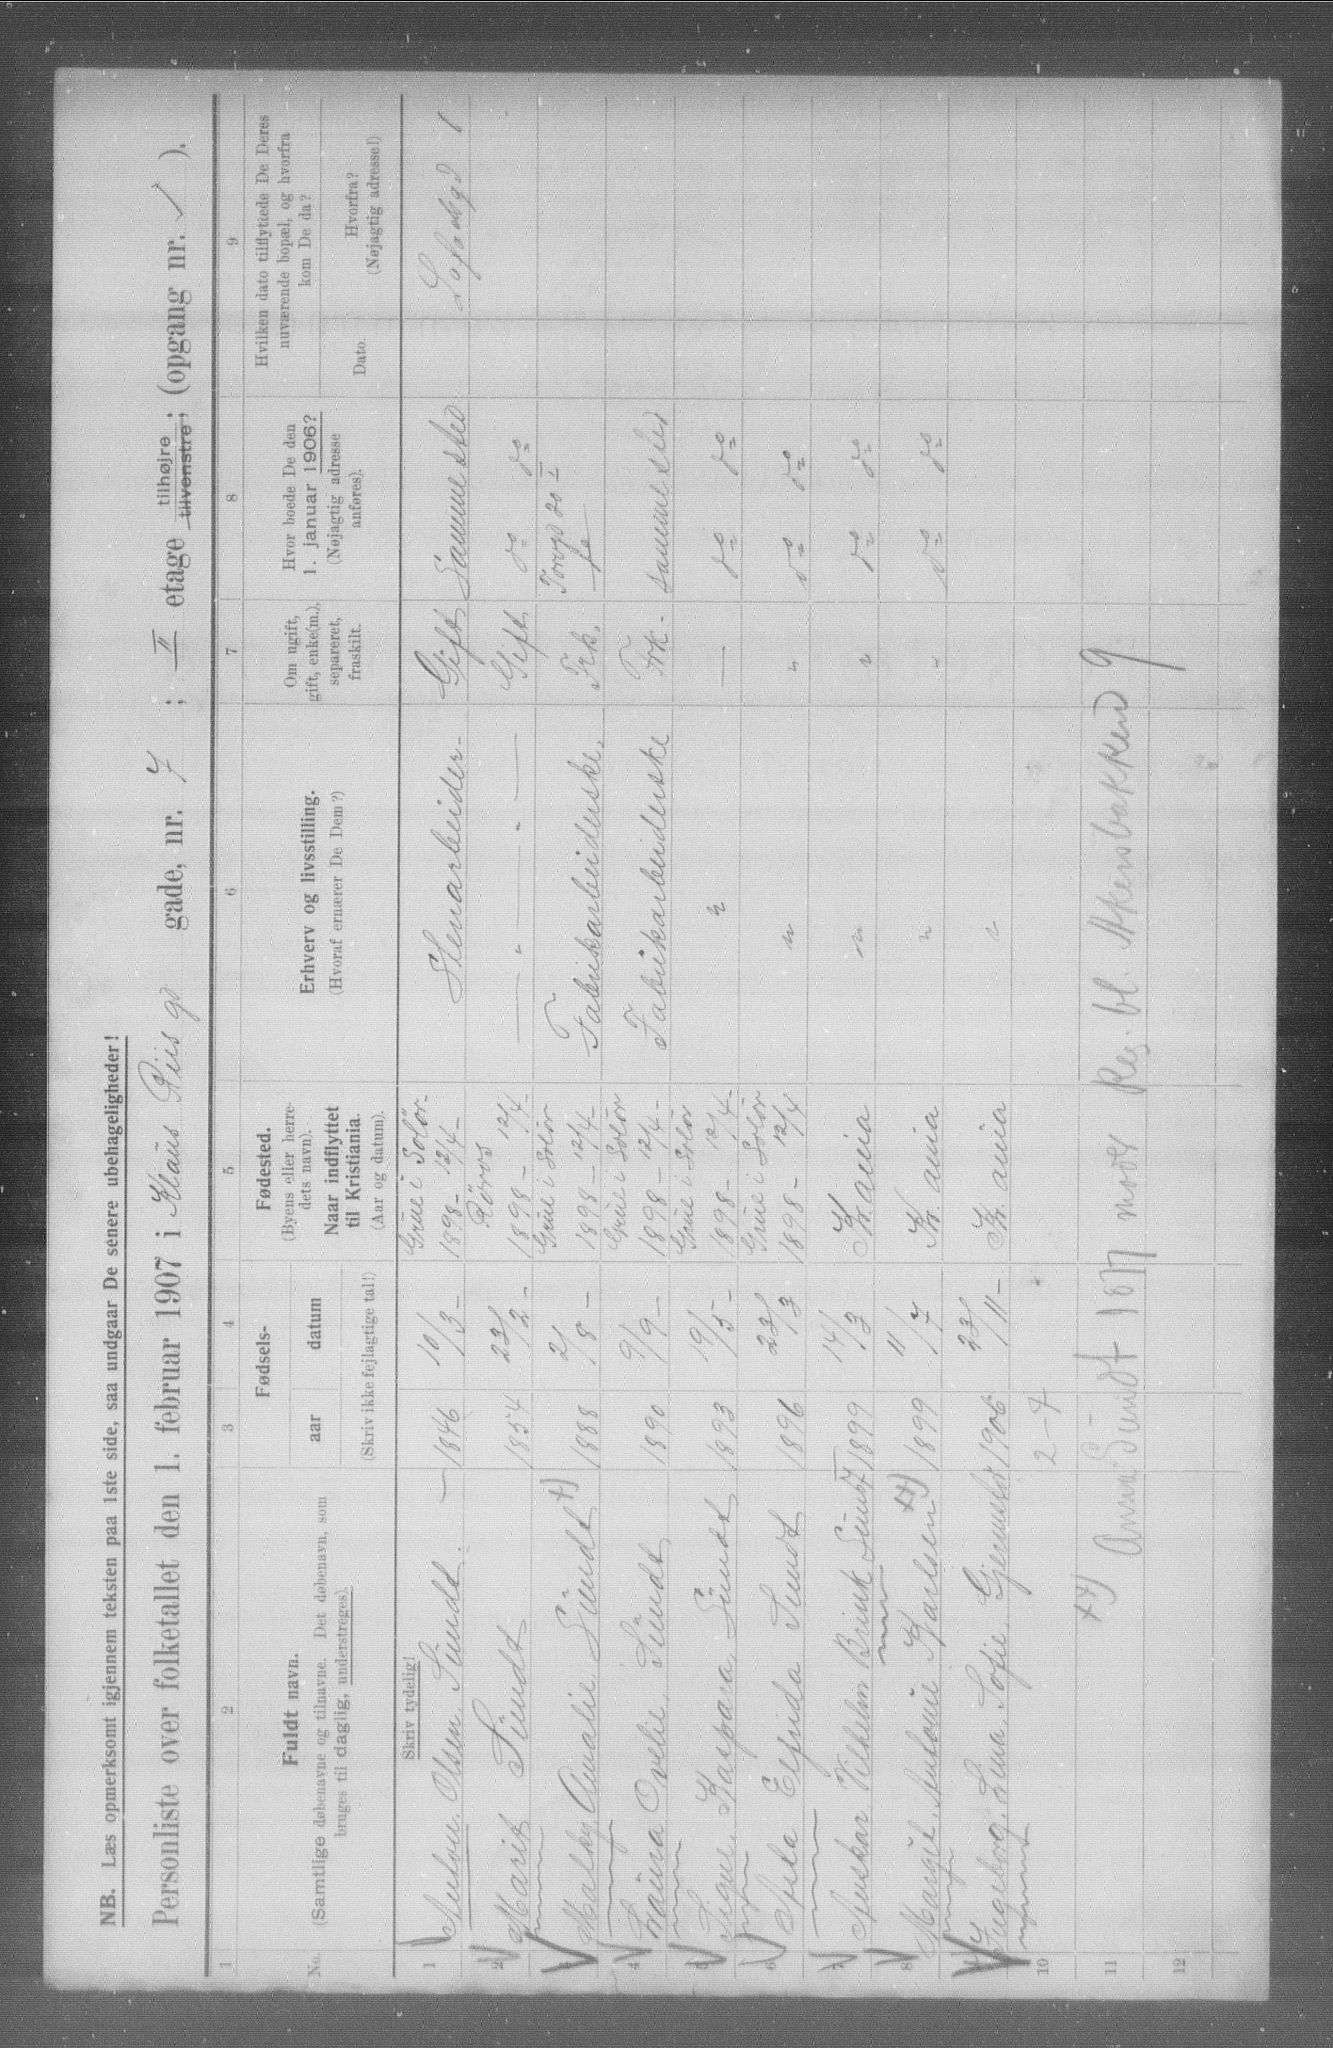 NB. Læs opmerksomt igjennem teksten paa 1ste side, saa undgaar De senere ubehageligheder!
Personliste over folketallet den 1. februar 1907 i Klaus Riis gd gade, nr. 7 ; II etage tilhøjre tilvenstre; (opgang nr. ✓ ).
1 2 3 4 5 6 7 8 9
No.
Fuldt navn.
(Samtlige døbenavne og tilnavne. Det døbenavn, som
bruges til daglig, understreges).
Fødsels-
aar datum
(Skriv ikke fejlagtige tal!)
Fødested.
(Byens eller herre-
dets navn).
Naar indflyttet
til Kristiania.
(Aar og datum).
Erhverv og livsstilling.
(Hvoraf ernærer De Dem?)
Om ugift,
gift, enke(m.),
separeret,
fraskilt.
Hvor boede De den
1. januar 1906?
(Nøjagtig adresse
anføres).
Hvilken dato tilflyttede De Deres
nuværende bopæl, og hvorfra
kom De da?
Dato.
Hvorfra?
(Nøjagtig adresse!)
Skriv tydelig!
1 Anton Olsen Sundt. — 1846 10/3 – Grue i Solör- 1898 - 12/4 – Stenarbeider - Gift Samme sted
2 Marit Sundt 1854 23/2 – Röros 1898 – 12/4 - — " — " — Gift do do
3 Amalie Sundt +) 1888 2/8 – Grue i Solör 1898 – 12/4 - Fabrikarbeiderske. Frk. Torvgd 20 I
4 Laura Ovelie Sundt 1890 9/9 – Grue i Solör 1898 – 12/4 – Fabrikarbeiderske Frk. samme sted
5 Signe Kaspara Sundt 1893 19/5 – Grue i Solör 1898 – 12/4 - " — do do
6 Sundt 1896 23/3 Grue i Solör 1898 – 12/4 " " do do
7 Vilhelm Sundt 1899 14/3 Kr.ania " " do do
8 Margit Antonie Karlsen ++) 1899 11/7 Kr.ania " " do do
9 Ingeborg Lina Sofie 1906 23/11 – Kr.ania "
10 2 – 7
11 ++) Anna Sundt 1877 moder Reg. bl. Akersbakken 9
12